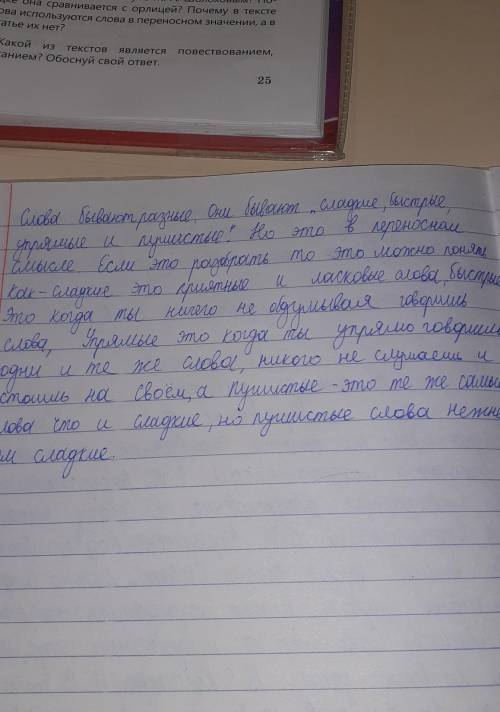 дке она сравнивается с орлицей? Почему в тексте
ова используются слова в переносном значении, а в
атье их нет?
Какой из текстов является повествованием,
санием? Обоснуй свой ответ.
25
Слова бывают разные, Они бывают „сладкие, быстрые,
упрямые и пушистые". Но это в переносном
смысле. Если это разобрать то это можно понять
как - сладкие это приятные и ласковые слова, быстрые
Это когда ты ничего не обдумывая говоришь
слова, Упрямые это когда ты упрямо говоришь
одни и те же слова, никого не слушаешь и
стоишь на своём, а пушистые - это те же самы
лова что и сладкие, но пушистые слова нежне
ем сладкие.